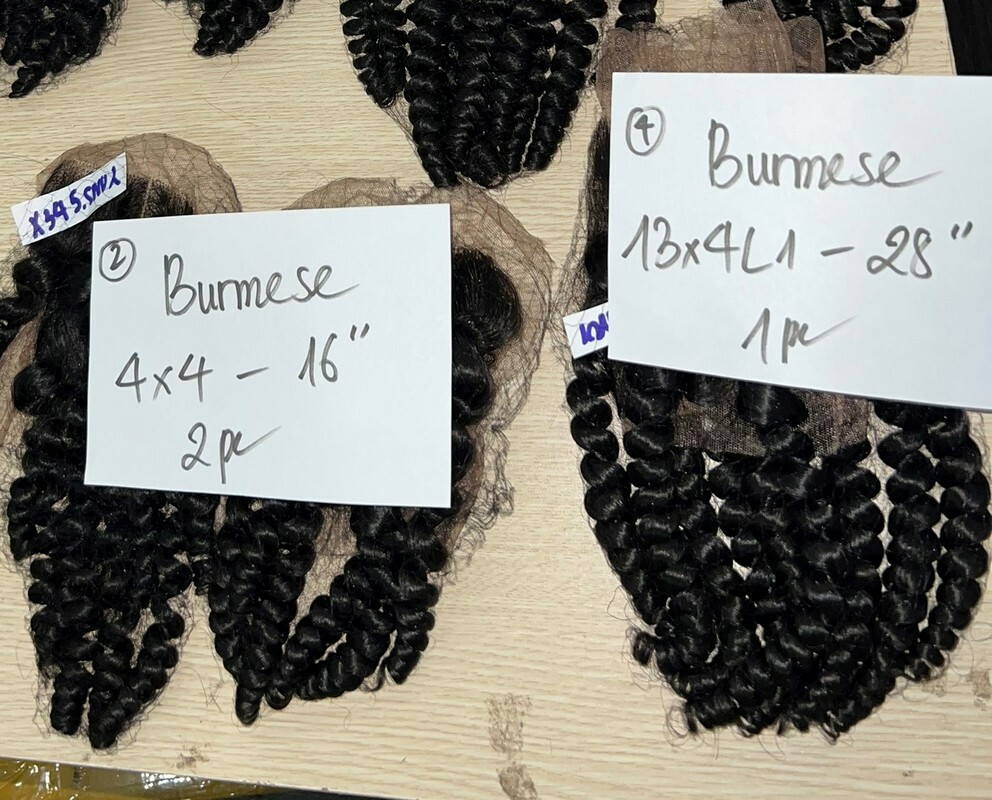 ②
Burmese
4x4 - 16"
2pc
④
Burmese
13x4L1 - 28"
1pc